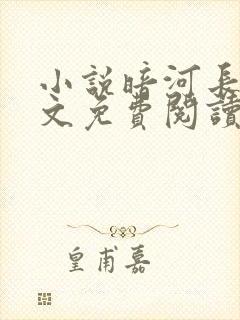 小説暗河長
文免費閱讀
皇甫嘉